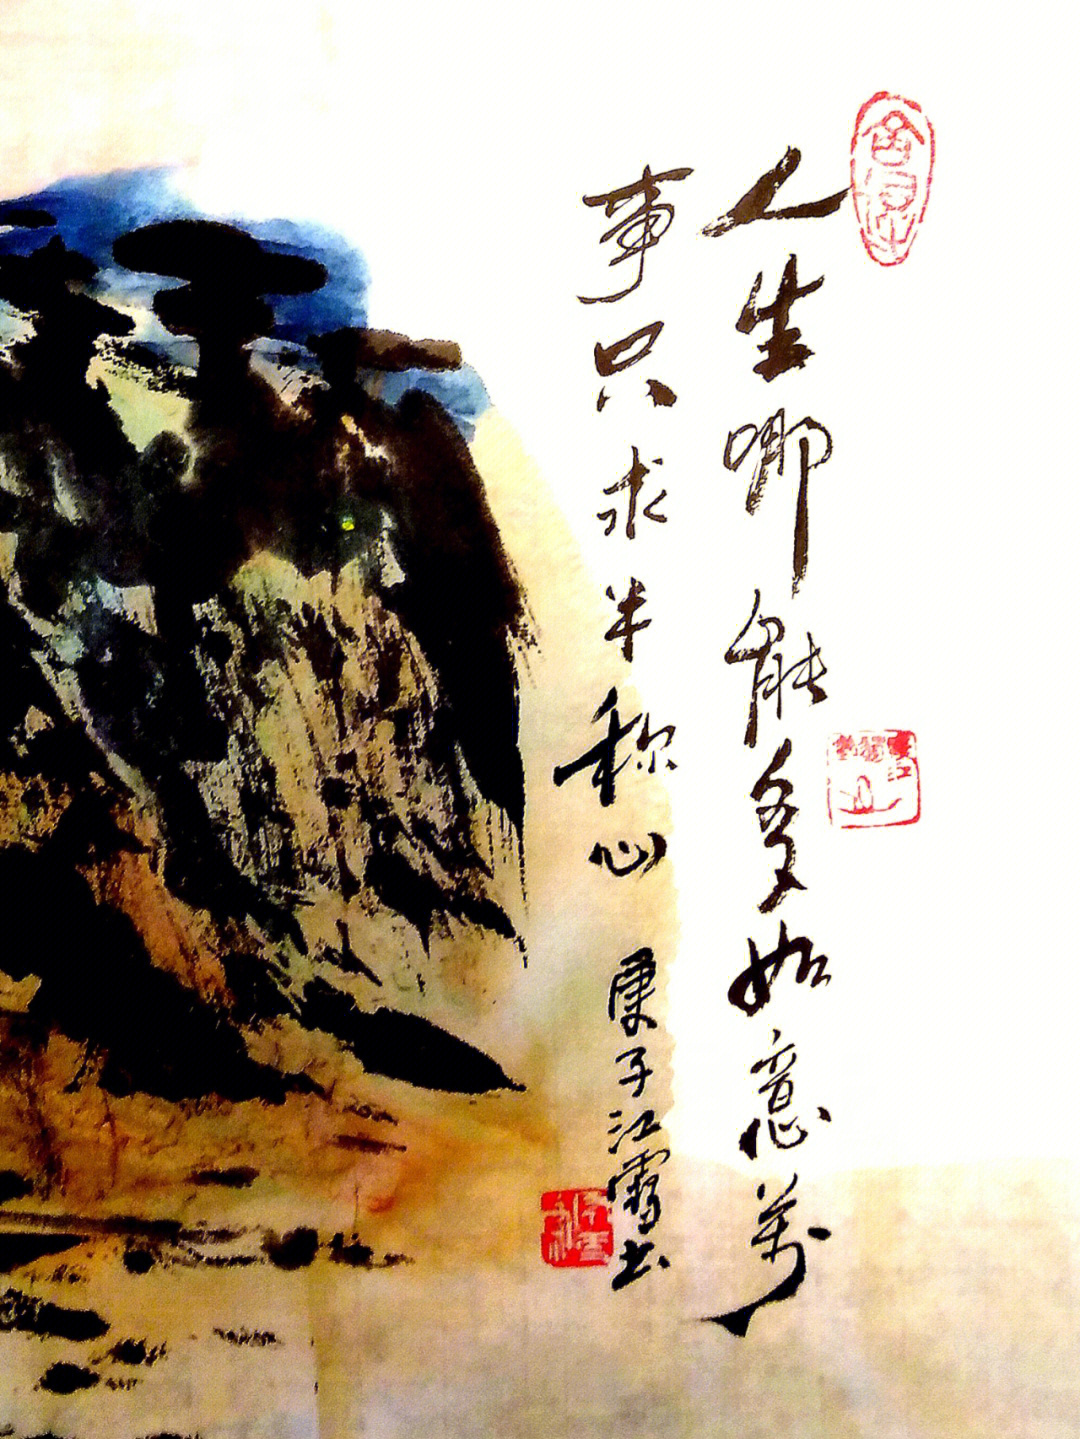 人生哪能多如意萬
事只求半称心 庚子江雪书